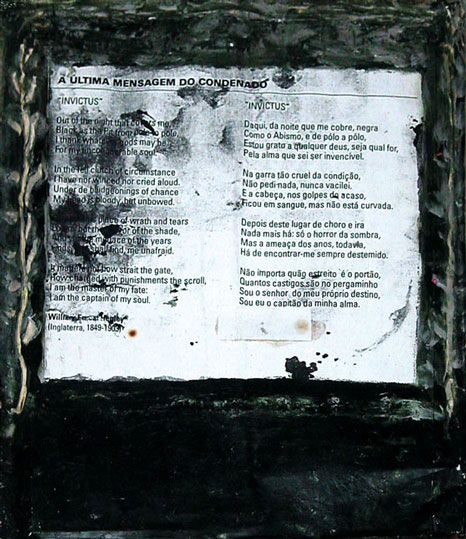 A ÚLTIMA MENSAGEM DO CONDENADO
"INVICTUS"
Out of the night that covers me,
Black as the Pit from pole to pole,
I thank whatever gods may be
For my unconquerable soul.
In the fell clutch of circumstance
I have not winced nor cried aloud.
Under de bludgeonings of chance
My head is bloody, but unbowed.
place of wrath and tears
of the shade,
of the years
me, unafraid.
It matters not how strait the gate,
How charged with punishments the scroll,
I am the master of my fate:
I am the captain of my soul.
William
(Inglaterra, 1849-1903)
"INVICTUS"
Daqui, da noite que me cobre, negra
Como o Abismo, e de pólo a pólo,
Estou grato a qualquer deus, seja qual for,
Pela alma que sei ser invencível.
Na garra tão cruel da condição,
Não pedi nada, nunca vacilei.
E a cabeça, nos golpes do acaso,
Ficou em sangue, mas não está curvada.
Depois deste lugar de choro e ira
Nada mais há: só o horror da sombra,
Mas a ameaça dos anos, todavia,
Há de encontrar-me sempre destemido.
Não importa quão estreito é o portão,
Quantos castigos são no pergaminho
Sou o senhor do meu próprio destino,
Sou eu o capitão da minha alma.